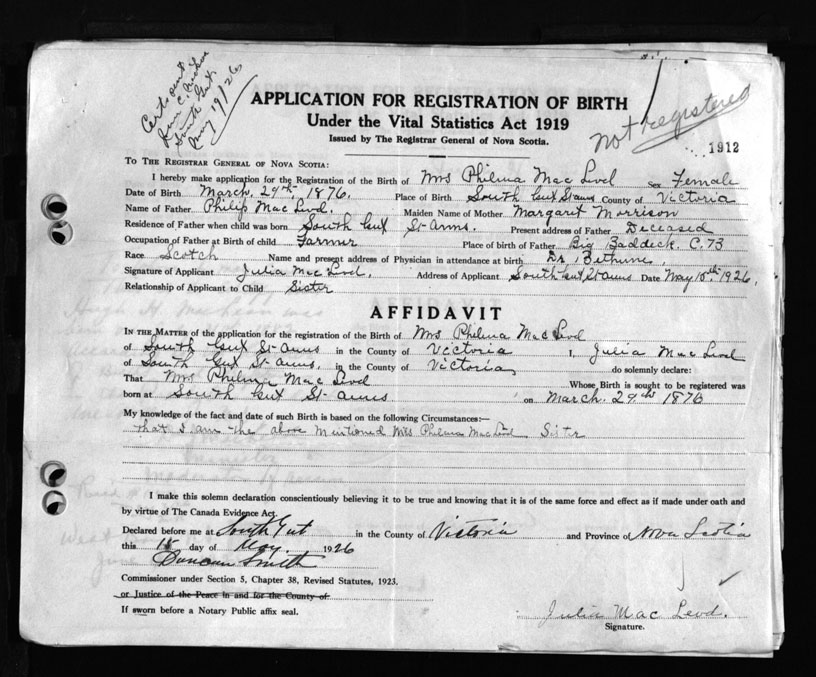 Cert sent
South Gut.
May 19/26
APPLICATION FOR REGISTRATION OF BIRTH
Under the Vital Statistics Act 1919
Issued by The Registrar General of Nova Scotia.
Not registered
1912
TO THE REGISTRAR GENERAL OF NOVA SCOTIA:
I hereby make application for the Registration of the Birth of Mrs Philena Mac Leod Sex Female
Date of Birth March, 29th, 1876. Place of Birth South Gut St anns County of Victoria
Name of Father Philip Mac Leod. Maiden Name of Mother Margaret Morrison
Residence of Father when child was born South Gut St-Anns. Present address of Father Deceased
Occupation of Father at Birth of child Farmer Place of birth of Father Big Baddeck C.B
Race Scotch Name and present address of Physician in attendance at birth Dr, Bethune,
Signature of Applicant Julia Mac Leod. Address of Applicant South Gut St anns Date May 15th 1926.
Relationship of Applicant to Child Sister
AFFIDAVIT
IN THE MATTER of the application for the registration of the Birth of Mrs Philena Mac Leod
of South Gut St-anns in the County of Victoria I, Julia Mac Leod
of South Gut St-anns, in the County of Victoria, do solemnly declare:
That Mrs Philena Mac Leod Whose Birth is sought to be registered was
born at South Gut St-anns on March. 29th 1876
My knowledge of the fact and date of such Birth is based on the following Circumstances:—
that I am the above mentioned Mrs Philena Mac Leod Sister
I make this solemn declaration conscientiously believing it to be true and knowing that it is of the same force and effect as if made under oath and
by virtue of The Canada Evidence Act.
Declared before me at South Gut in the County of Victoria and Province of Nova Scotia
this 15 day of May. 1926
Duncan Smith
Commissioner under Section 5, Chapter 38, Revised Statutes, 1923.
or Justice of the Peace in and for the County of
If sworn before a Notary Public affix seal.
Julia Mac Leod.
Signature.